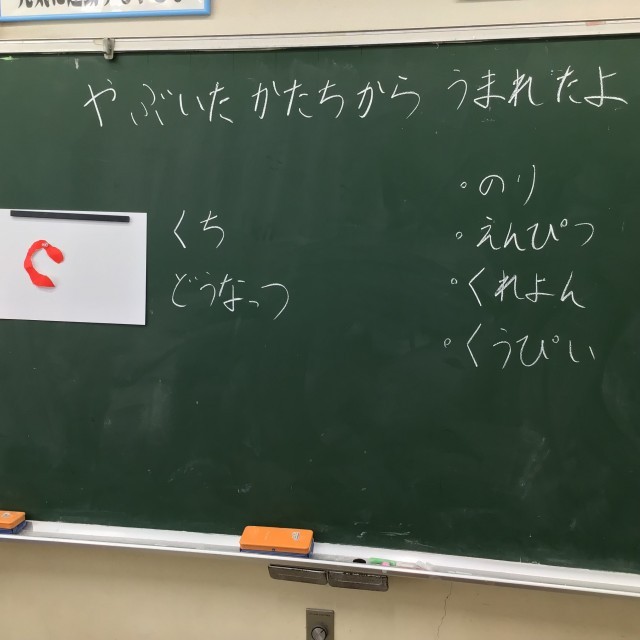 やぶいたかたちから うまれたよ
くち
どうなっつ
・のり
・えんぴつ
・くれよん
・くうぴい